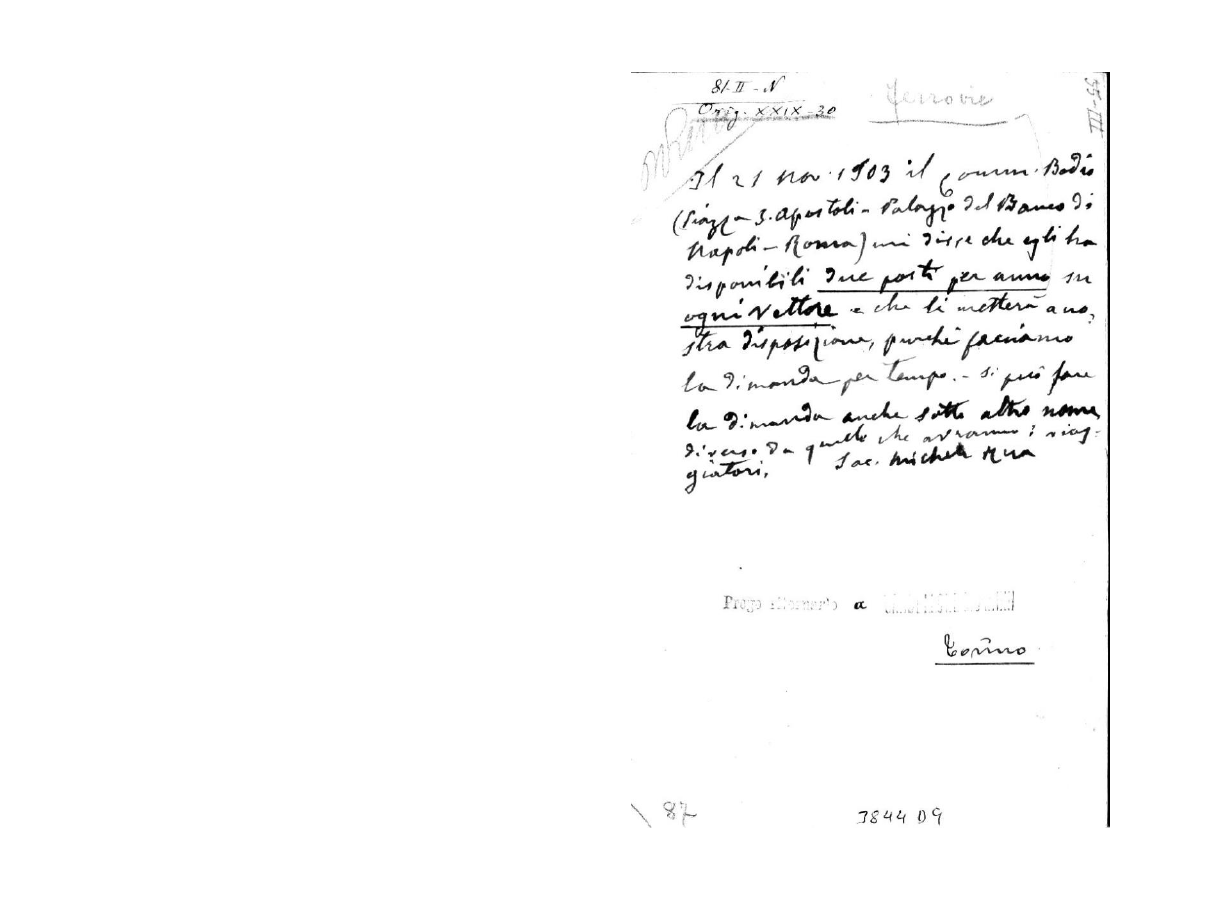 81-II-N
Orig. XXIX-30
Ferrovie
55-III
Il 21 Nov. 1903 il Comm. Bodio
(Piazza S. Apostoli - Palazzo del Banco di
Napoli - Roma) mi disse che egli ha
disponibili due posti per anno su
ogni Vettore e che li metterà a no,
stra disposizione, purchè facciamo
la dimanda per tempo. - Si può fare
la dimanda anche sotto altro nome
diverso da quello che avranno i viag-
giatori.
Sac. Michele Rua
a
Torino
87
3844 D9